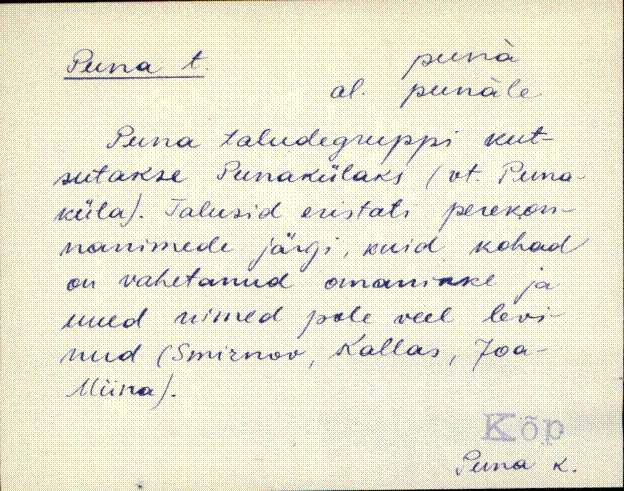 Puna t. punà
al. punàle
Puna taludegruppi kut-
sutakse Punakülaks (vt. Puna-
küla). Talusid eristati perekon-
nanimede järgi, kuid kohad
on vahetanud omanikke ja
uued nimed pole veel levi-
nud (Smirnov, Kallas, Joa-
Miina).
Kõp
Puna k.